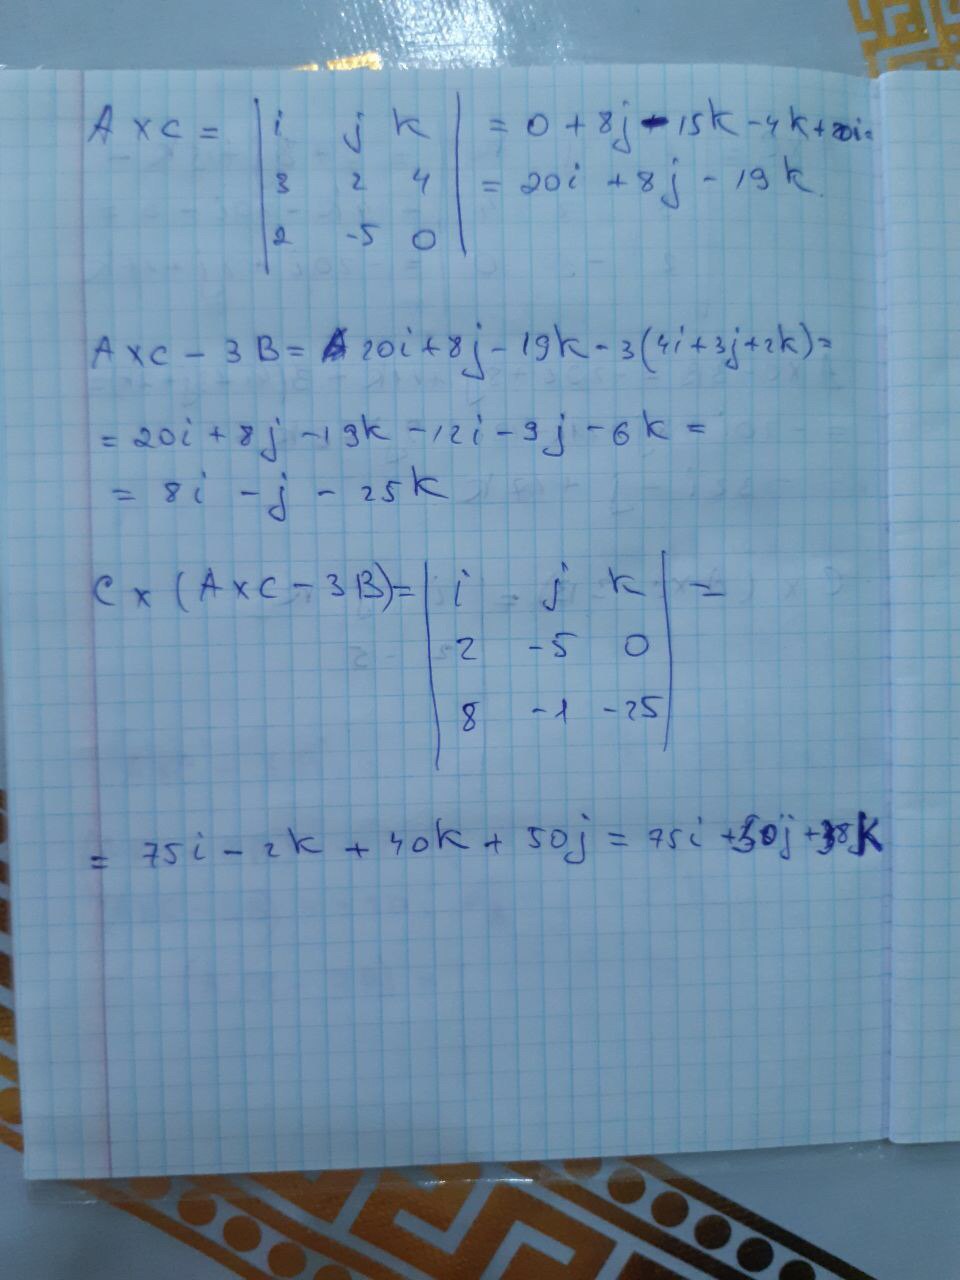 A x C = | i j k | = 0 + 8j - 15k - 4k + 20i =
| 3 2 4 | = 20i + 8j - 19k.
| 2 -5 0 |
A x C - 3B = 20i + 8j - 19k - 3(4i + 3j + 2k) =
= 20i + 8j - 19k - 12i - 9j - 6k =
= 8i - j - 25k
C x (A x C - 3B) = | i j k | =
| 2 -5 0 |
| 8 -1 -25 |
= 75i - 2k + 40k + 50j = 75i + 50j + 38k